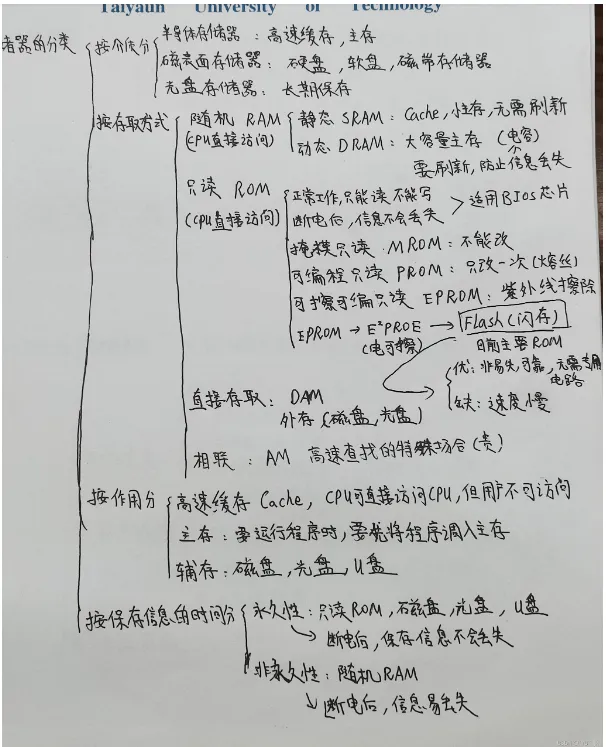 Taiyuan University of Technology
者器的分类
按介质分
半导体存储器：高速缓存，主存
磁表面存储器：硬盘，软盘，磁带存储器
光盘存储器：长期保存
按存取方式
随机 RAM
(CPU直接访问)
静态 SRAM：Cache，小主存，无需刷新
动态 DRAM：大容量主存（电容）
要刷新，防止信息丢失
只读 ROM
(CPU直接访问)
正常工作，只能读不能写
断电后，信息不会丢失
适用BIOS芯片
掩模只读 MROM：不能改
可编程只读 PROM：只改一次（熔丝）
可擦可编只读 EPROM：紫外线擦除
EPROM → E²PROE → Flash(闪存)
(电可擦)
目前主要ROM
优：非易失，可靠，无需专用
电路
缺：速度慢
直接存取：DAM
外存（磁盘，光盘）
相联：AM 高速查找的特殊场合（贵）
按作用分
高速缓存 Cache，CPU可直接访问CPU，但用户不可访问
主存：要运行程序时，要先将程序调入主存
辅存：磁盘，光盘，U盘
按保存信息的时间分
永久性：只读ROM，磁盘，光盘，U盘
断电后，保存信息不会丢失
非永久性：随机RAM
断电后，信息易丢失